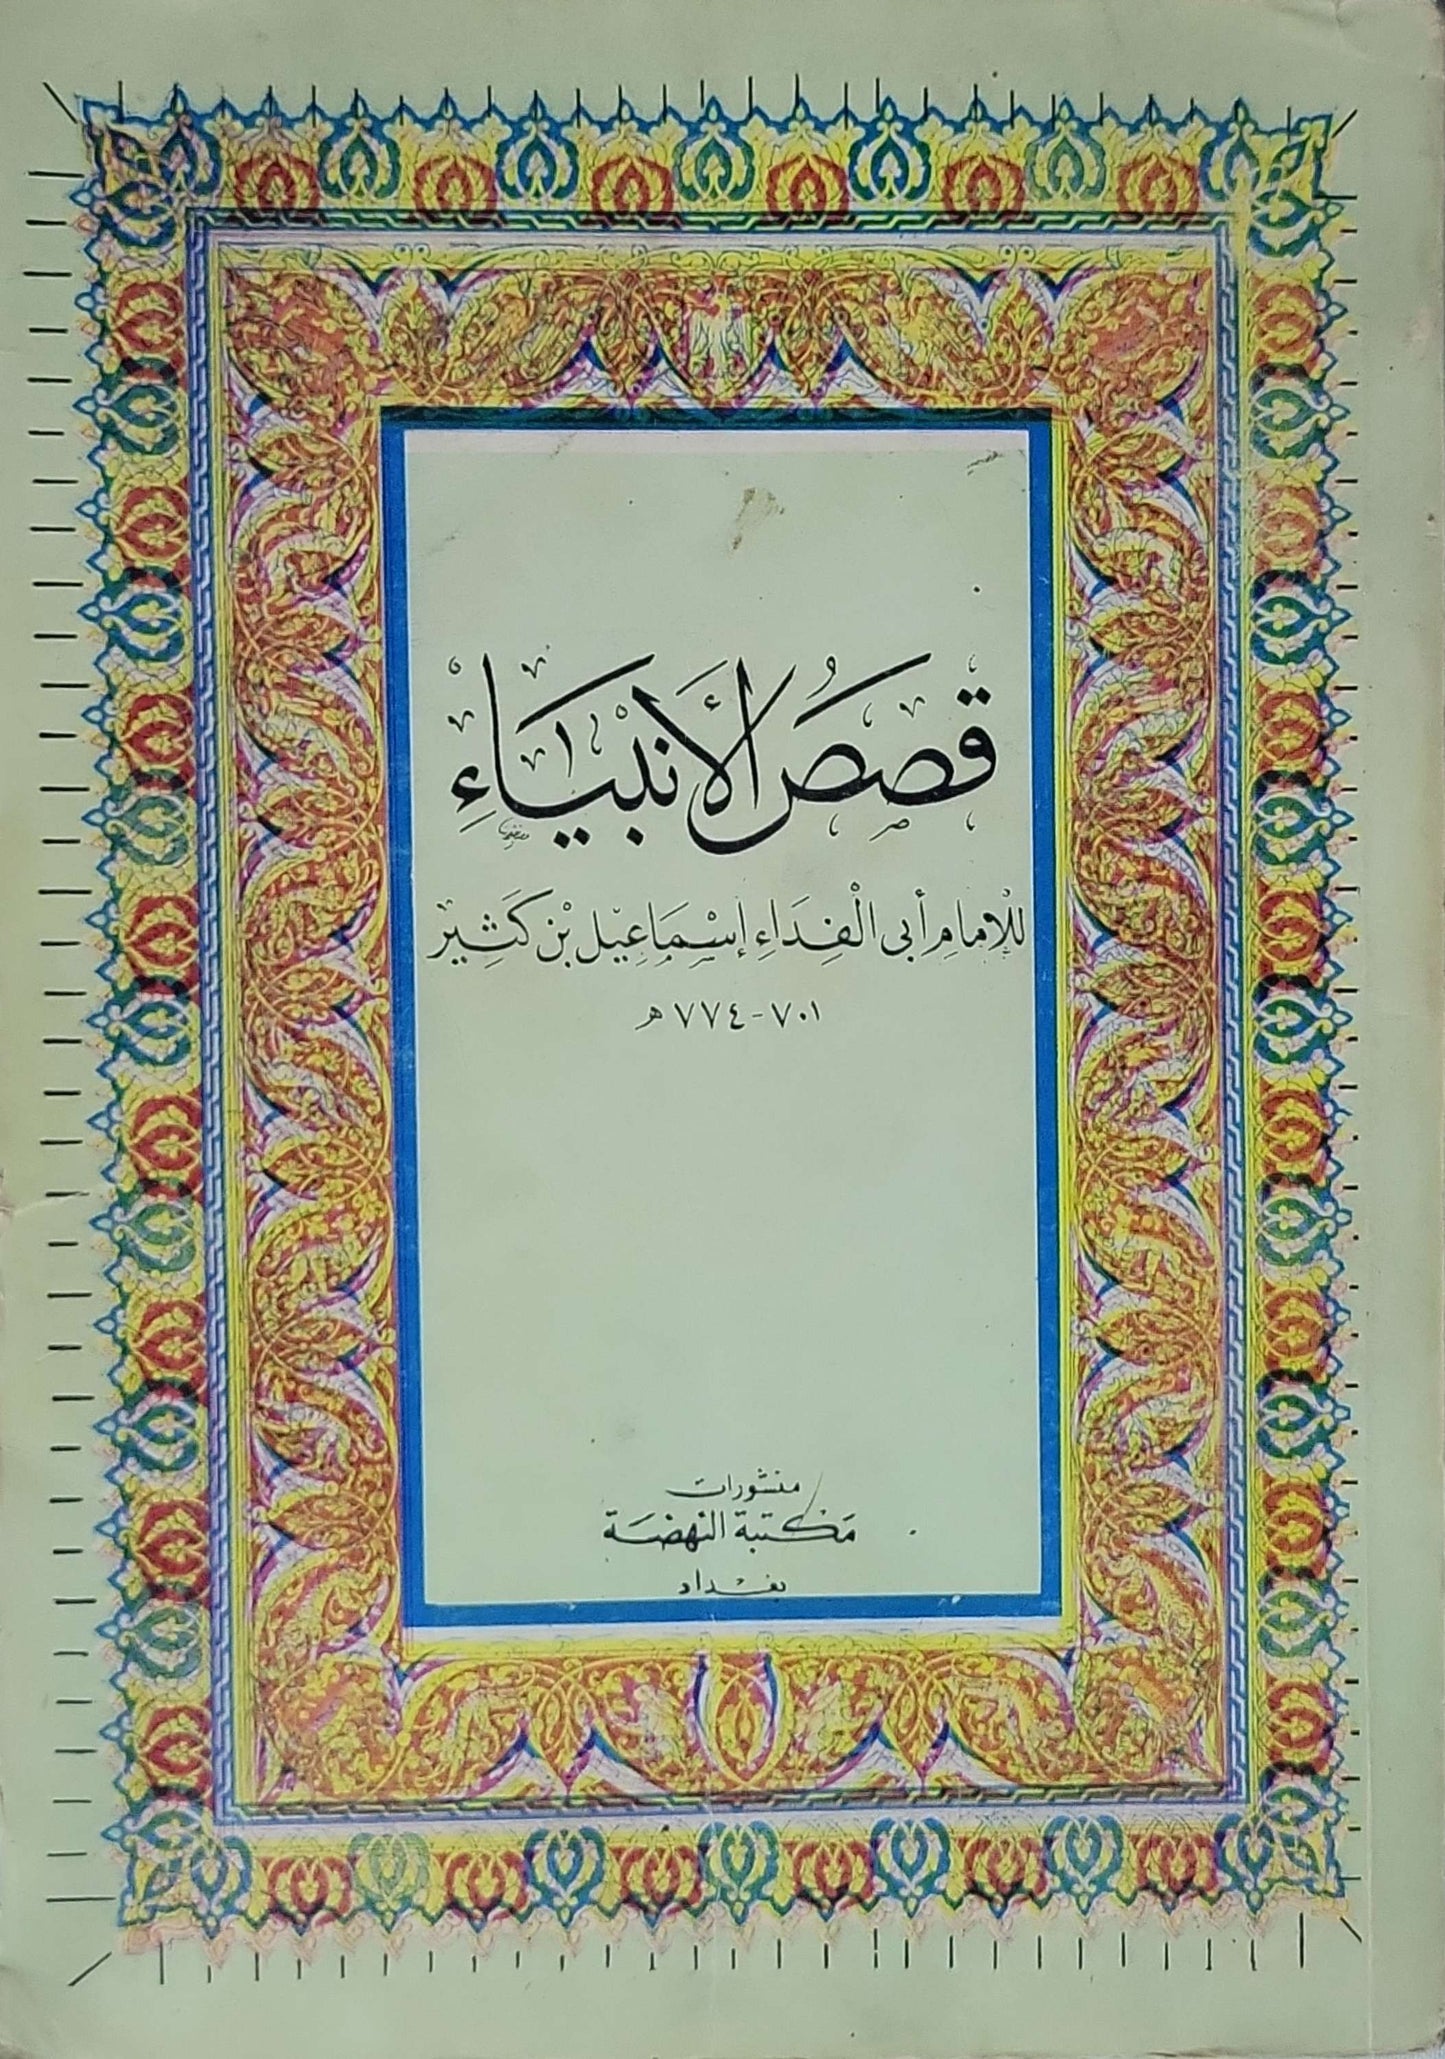 قصَصُ الأَنْبيَاءِ
للإمامِ أبى الْفِدَاءِ إسْمَاعِيل بْن كَثِير
٧٠١ - ٧٧٤ هـ
منشورات
مَكتبة النهضَة
بغداد